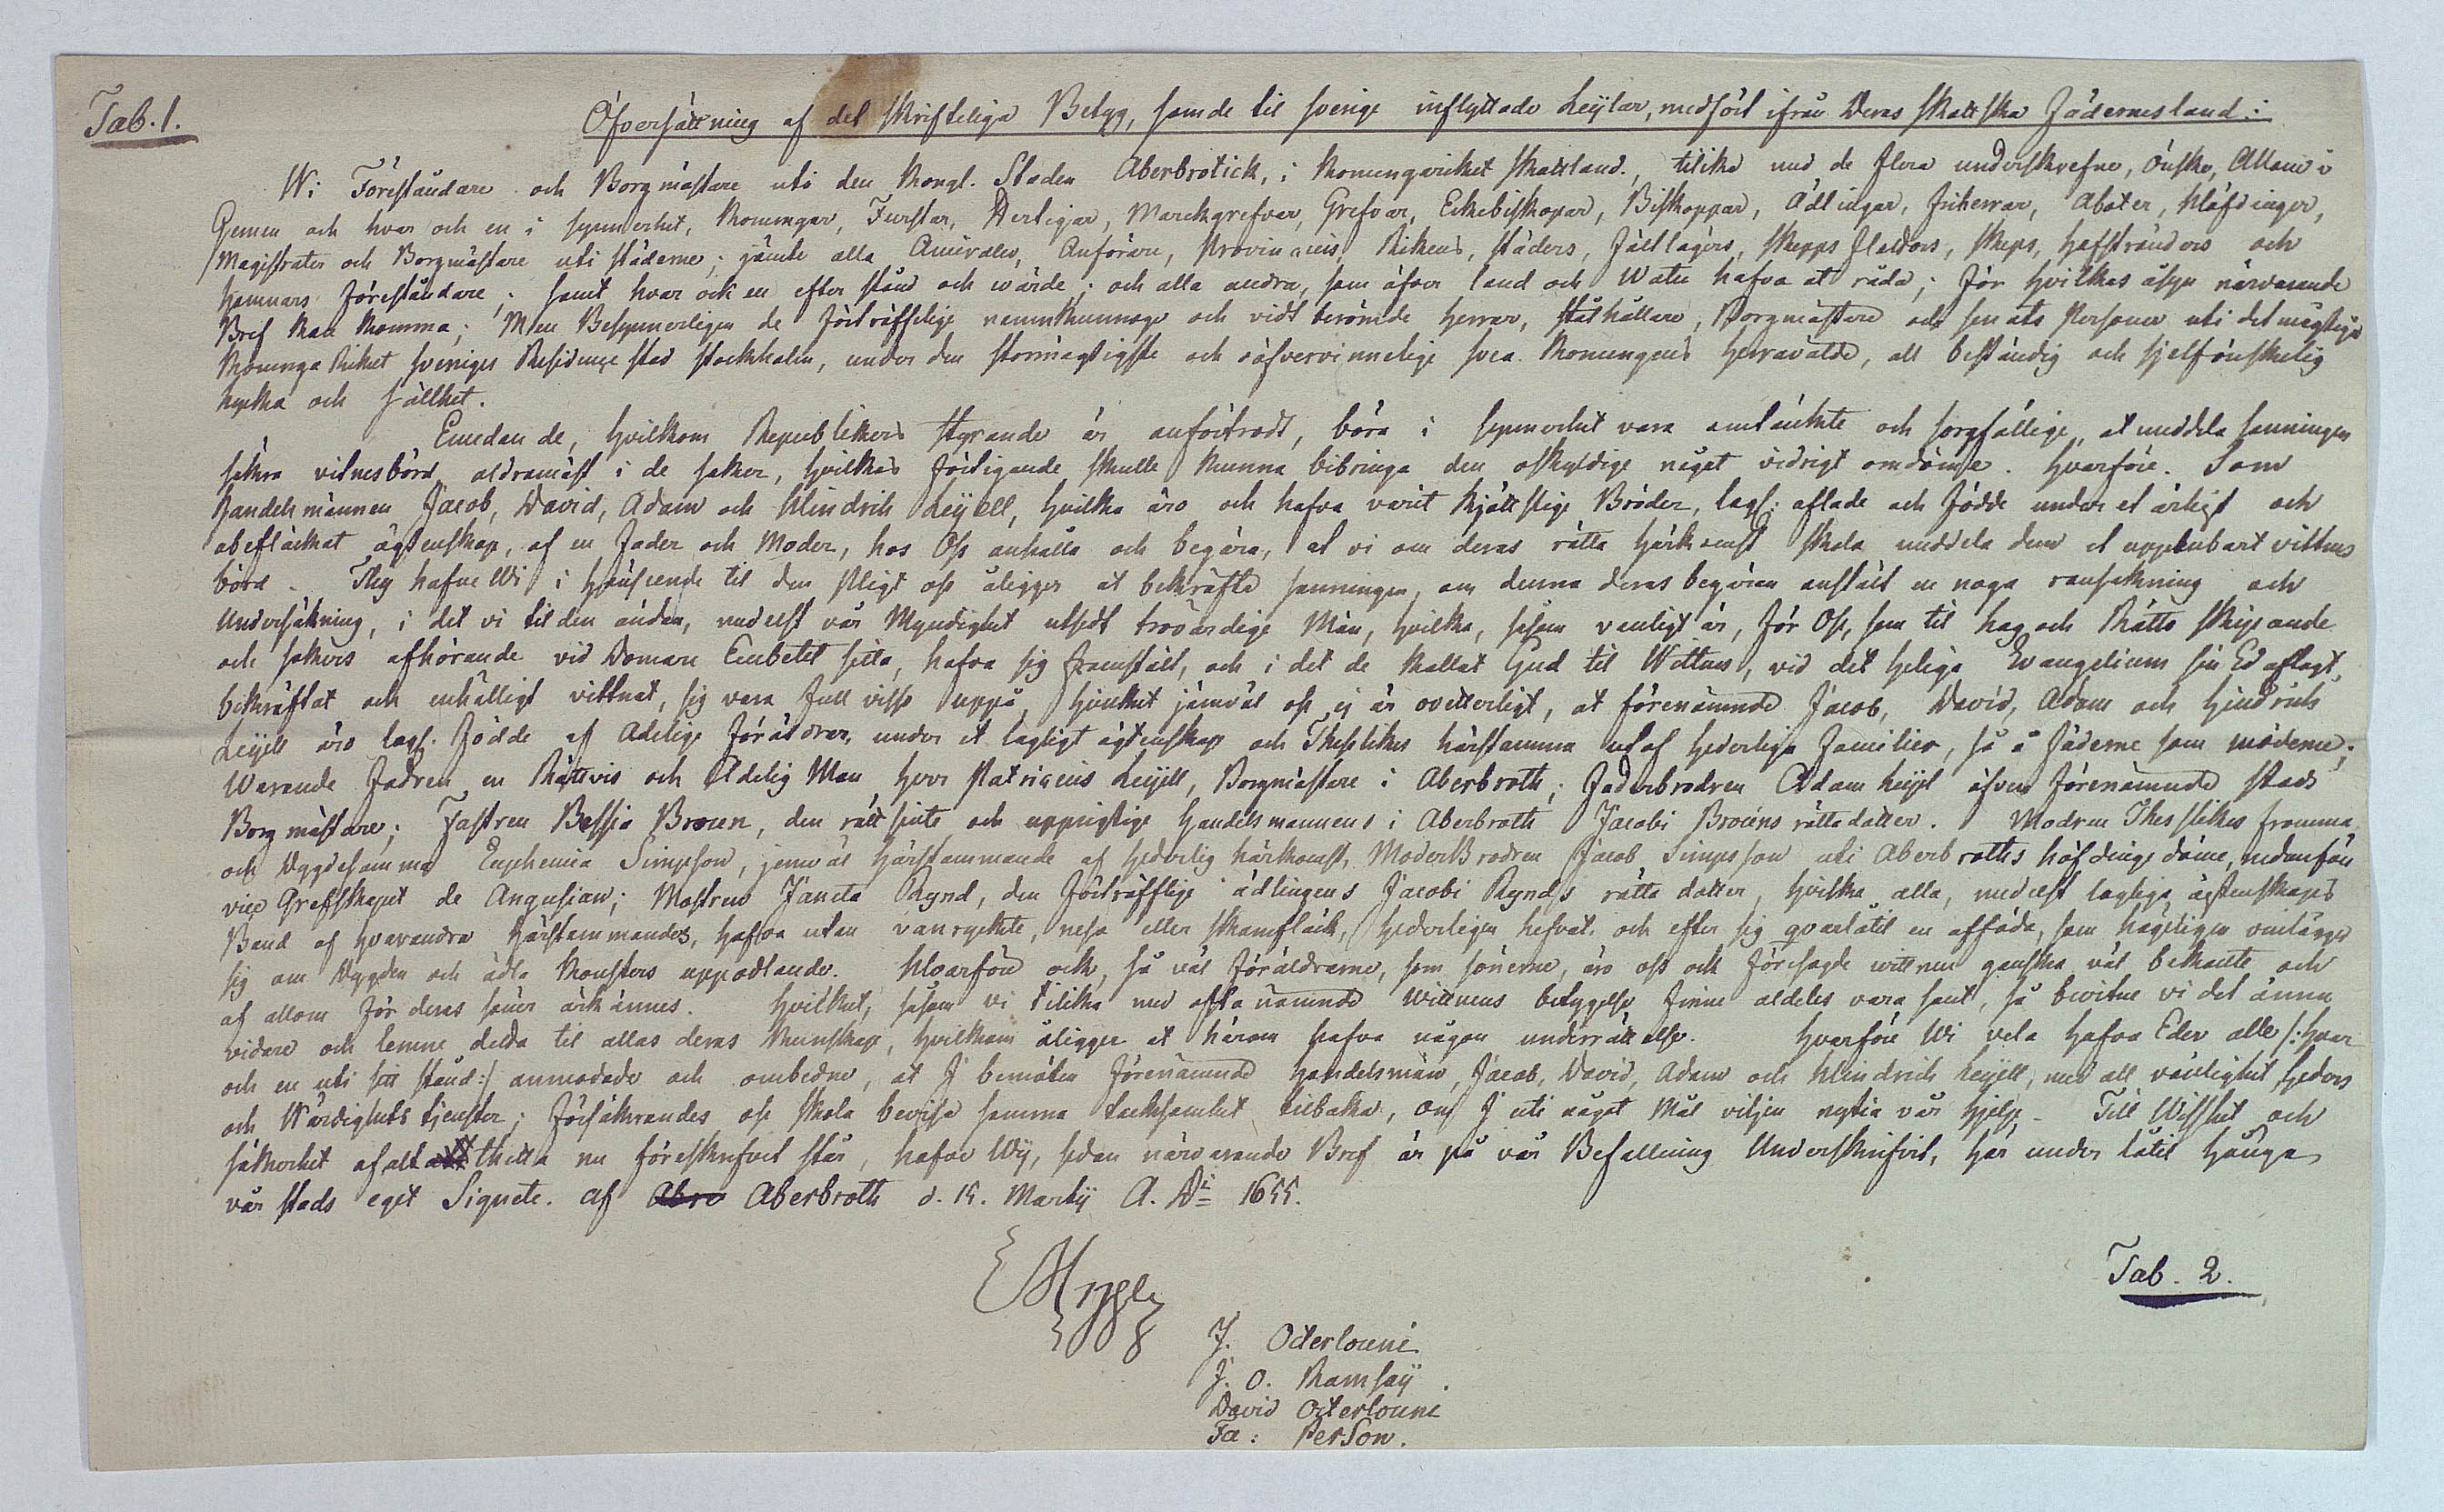 Tab. 1.
Öfversättning af det skrifteliga Betyg, som de til sverige inflyttade Leijlar, medfört ifrån Deras skottska Fädernesland:
Wi Föreståndare och Borgmästare uti den Kongl. Staden Aberbrotick, i Konungariket Skottland, tillika med de flera underskrefne, önske, Allom i
Gemen och hvar och en i synnerhet, Konungar, Furstar, Hertigar, Marckgrefvar, Grefvar, Erkebiskopar, Biskoppar, Ädlingar, Friherrar, Abåter, Höfdingar,
Magistrater och Borgmästare uti städerne; jämte alla Amiraler, Anförare, Provinciers, Rikens, städers, Fältlägers, skepps flottors, skeps, hafstränders och
hamnars Föreståndare; samt hvar ock en efter stånd och wärde; och alla andra, som öfver land och Watn hafva at råda; för hvilkas åsyn närvarande
Bref kan komma; Men Besynnerligen de förträffelige namnkunnoge och vidt berömde herrar, ståthållare, Borgmästare och senats Personer uti det mägtiga
Konunga Riket sveriges Residence stad stockholm, under den stormägtigste och oöfvervinnelige svea Konungens herravälde, all beständig och sjelfönskelig
lycka och sällhet.
Emedan de, hvilkom Republikens styrande är anförtrodt, böra i synnerhet vara omtänkte och sorgfällige, at meddela sanningen
säkra vitnesbörd, aldramäst i de saker, hvilkas förtigande skulle kunna bibringa den oskyldige något vidrigt omdöme. Hvarföre. Som
handelsmännen Jacob, David, Adam och Hindrich Leijell, hvilka äro och hafva varit kjöttslige Bröder, lagl: aflade och födde under et ärligt och
obefläckat ägtenskap, af en Fader och Moder, hos Oss anhålla och begära, at vi om deras rätta härkomst skola meddela dem et uppenbart vittnes
börd. Ty hafve Wi i hänseende til den pligt oss åligger at bekräfta sanningen, om denna deras begäran anstält en noga ransakning och
Undersökning, i det vi til den ändan, medelst vår Myndighet utsedt trovärdige Män, hvilka, såsom vanligt är, för Oss, som til Lag och Rätta skipande
och sakers afhörande vid Domare Embetet sitta, hafva sig framstält, och i det de kallat Gud til Wittnes, vid det heliga Evangelium sin Ed aflagt,
bekräftat och enhälligt vittnat, sig vara full visse uppå, hvilket jämväl oss ej är ovitterligt, at förenämnde Jacob, David, Adam och Hindrich
Leijell äro lagl. födde af Adelige Föräldrar, under et lagligt ägtenskap och Thesslikes härstamma utaf hederliga Familier, så å Fäderne som möderne;
Warande Fadren en Rättvis och Ädelig Man, herr Patricius Leijell, Borgmästare i Aberbroth; Faderbrodren Adam Leijel äfven förenämnde stads
Borgmästare; Fastren Bessia Broun, den rättsinte och uppriktige Handelsmannens i Aberbroth Jacobi Brouns rätta dotter. Modren Thesslikes fromma
och Dygdesamma Euphemia Simpson, jemväl härstammande af hederlig härkomst, ModerBrodren Jacob Simpsson uti Aberbroths höfdingedöme, nedanför
vice Grefskapet de Angusian; Mostren Janeta Rynd, den förträfflige ädlingens Jacobi Rynds rätta dotter, hvilka alla, medelst lagliga ägtenskaps
Band af hvarandra härstammandes, hafva utan vanryckte, nesa eller skamfläck, hederligen lefvat, och efter sig qvarlåtit en afföda, som högeligen vinlägger
sig om Dygden och ädla Konsters uppodlande. Hvarföre ock, så väl föräldrarne, som sönerne, äro oss och föresagde wittnen ganska väl bekante och
af allom för deras söner ärkännes. Hvilket, såsom vi tilika med oftanämnde wittnens betygelse finne aldeles vara sant, så bevitne vi det ännu
vidare och lemne detta til allas deras kunskap, hvilkom åligger at härom hafva någon underrättelse. Hvarföre Wi vela hafva Eder alle /: hvar
och en uti sitt stånd :/ anmodade och ombedne, at I bemöten förenämnde Handelsmän, Jacob, David, Adam och Hindrich Leijell, med all vänlighet heders
och Wärdighets tjenster; försäkrandes oss skola bevisa samma tacksamhet tilbaka, om I uti något mål viljen nyttia vår hjelp. Till Wisshet och
säkerhet af alt thetta nu föreskrifvet står, hafve Wij, sedan närvarande Bref är på vår Befallning Underskrifvit, här under låtit hänga
vår stads eget Signete. af Aberbroth d. 15. Martij A. Di 1655.
Tab. 2.
J. Oterlouni
J. O. Ramsaÿ.
David Octerlouni
Fa: PerSon.